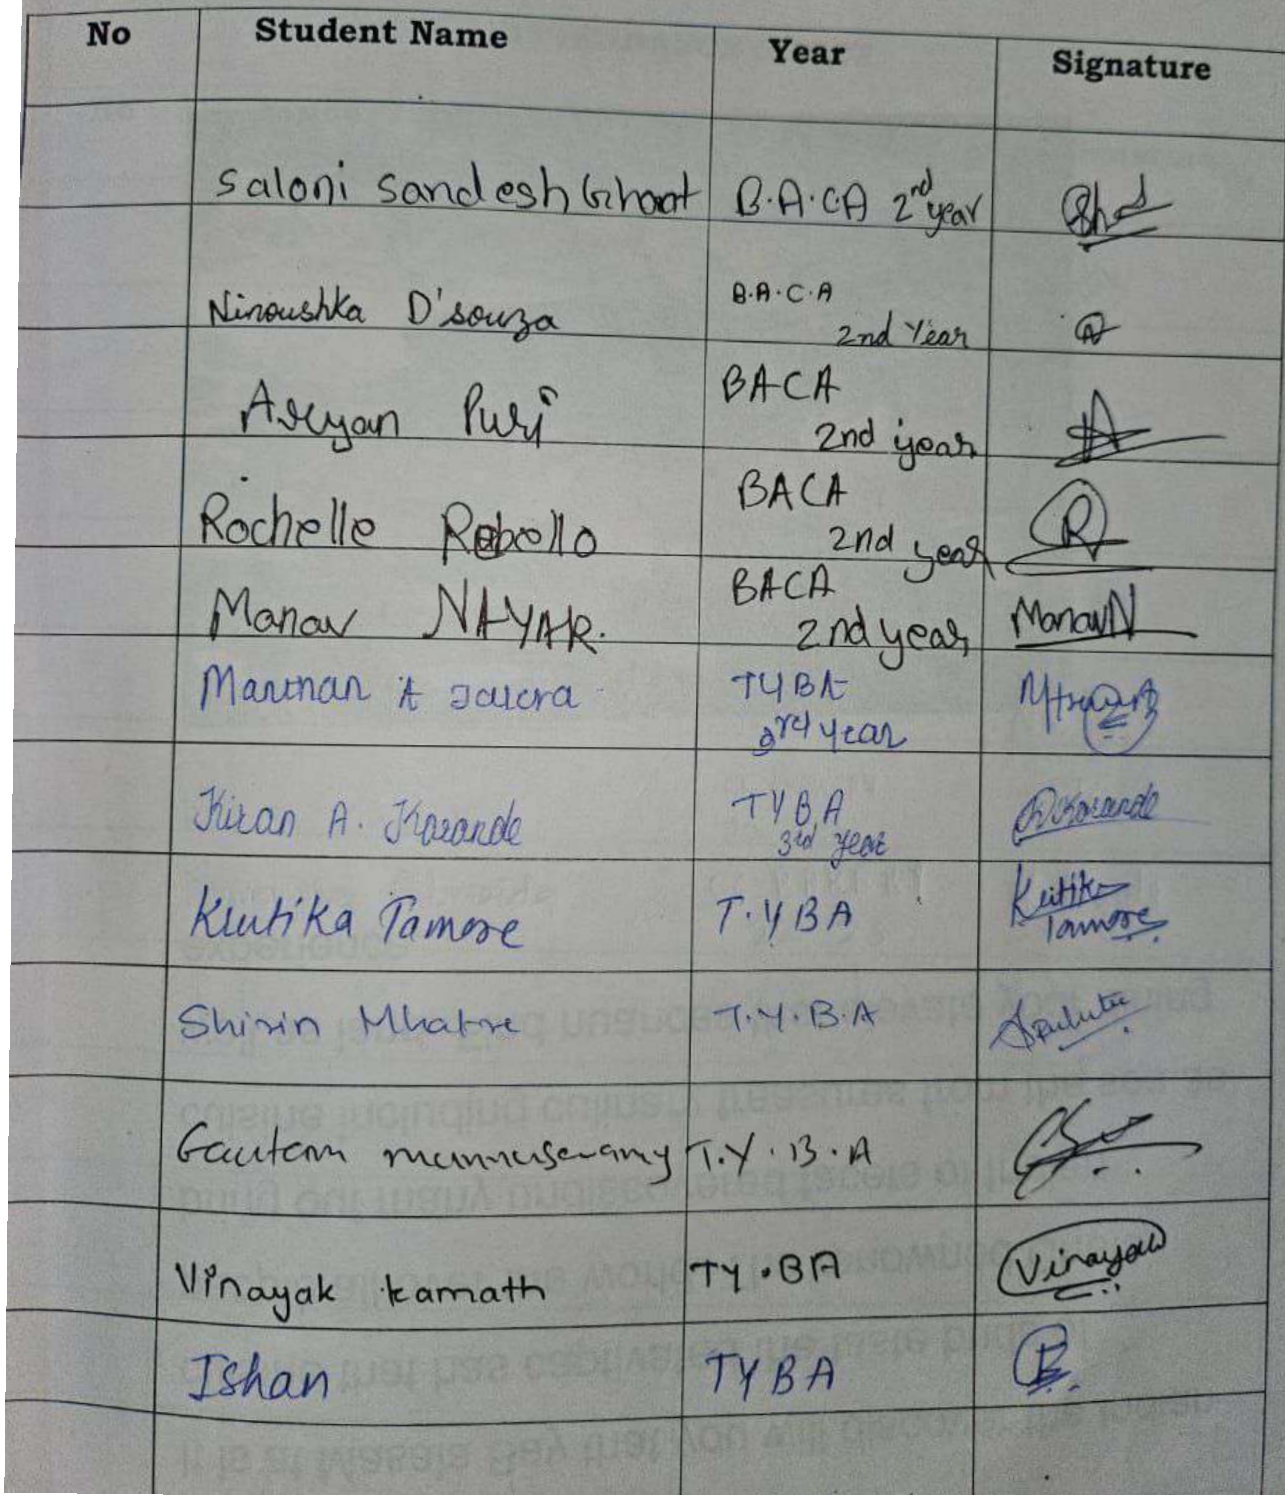 No Student Name Year Signature
Saloni Sandesh Gharat B.A.C.A 2nd year
Ninoushka D'souza B.A.C.A
2nd Year
Aryan Puri BACA
2nd year
Rochelle Rebello BACA
2nd year
Manav NAYAR. BACA
2nd year ManavN
A TYBA
3rd year
Kiran A. Karande TYBA
3rd year Karande
Krutika Tamore T.YBA Krutika
Tamore
Shirin Mhatre T.Y.B.A
Gautam T.Y.B.A
Vinayak kamath TY.BA Vinayak
Ishan TYBA